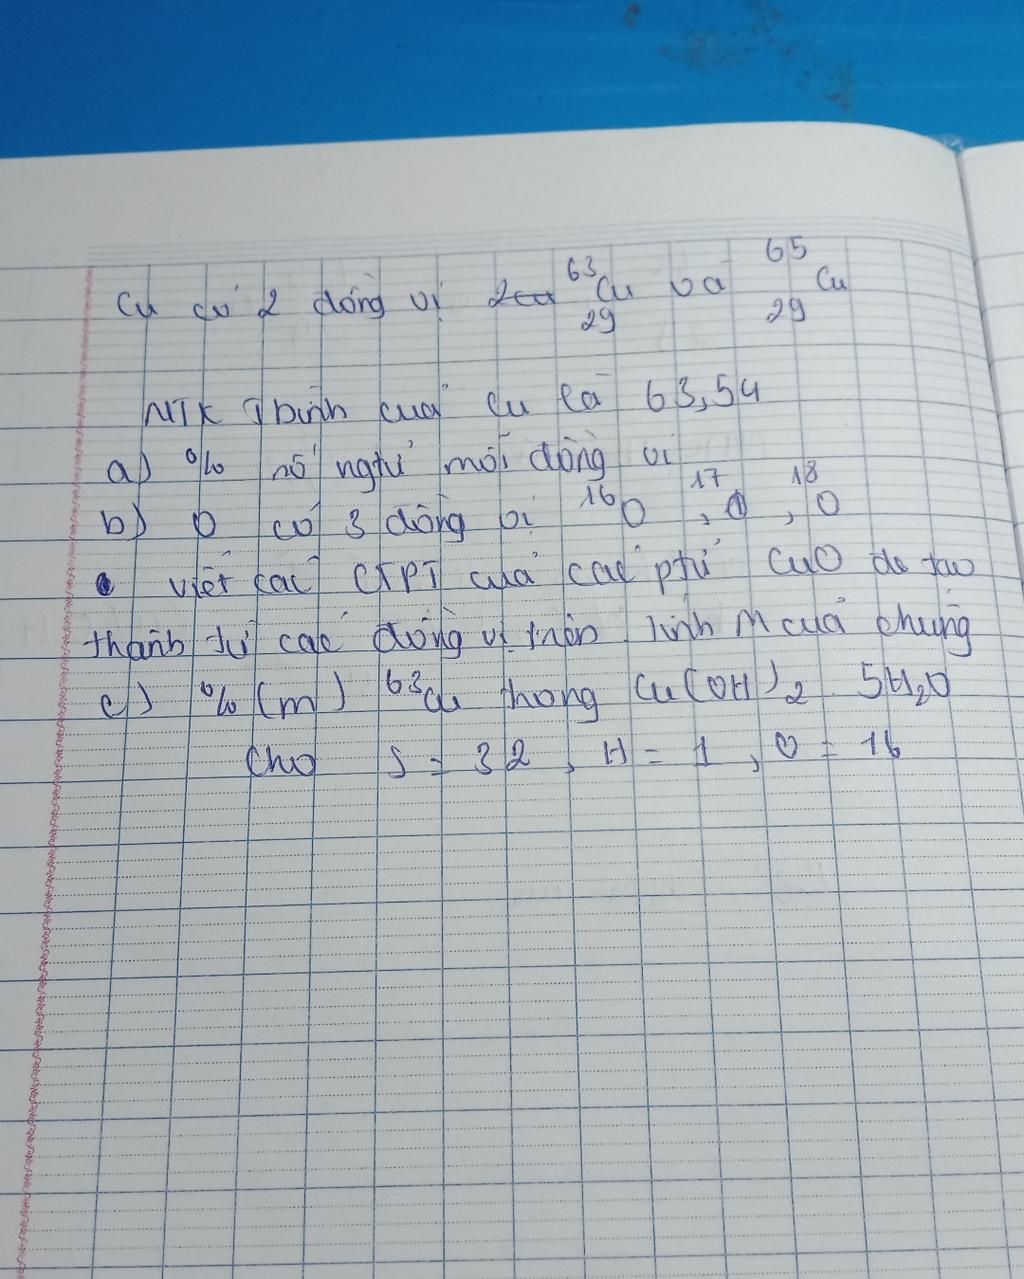 Cu có 2 đồng vị ⁶³₂₉Cu và ⁶⁵₂₉Cu
NTK Tbình của Cu là 63,54
a) % số ngtử mỗi đồng vị
b) O có 3 đồng vị ¹⁶O, ¹⁷O, ¹⁸O
Viết các CTPT của các ptử CuO đc tạo
thành từ các đồng vị trên tính M của chúng
c) % (m) ⁶³Cu trong Cu(OH)₂ 5H₂O
Cho S = 32, H = 1, O = 16